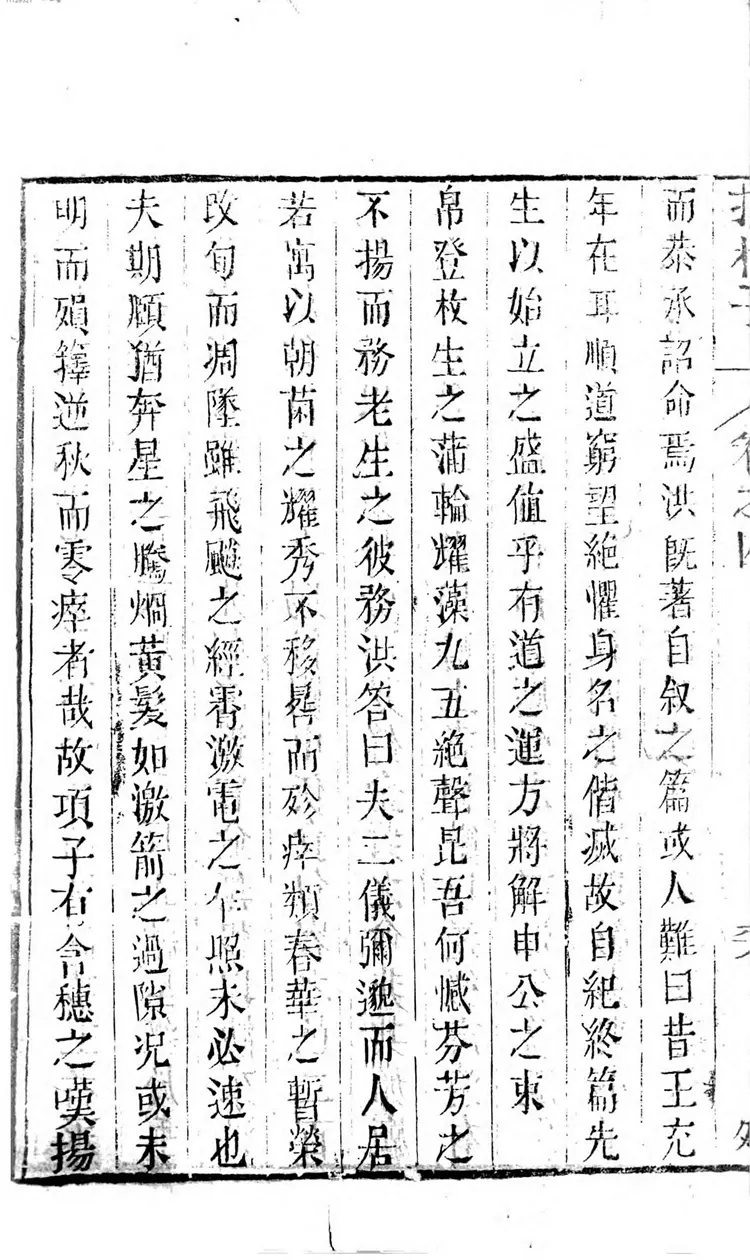 而恭承詔命焉洪既著自叙之篇或人難曰昔王充
年在耳順道窮望絶懼身名之偕滅故自紀終篇先
生以始立之盛值乎有道之運方將解申公之束
帛登枚生之蒲輪耀藻九五絶聲昆吾何憾芬芳之
不揚而務老生之彼務洪答曰夫二儀彌邈而人居
若寓以朝菌之耀秀不移晷而殄瘁類春華之暫榮
改旬而凋墜雖飛飈之經霄激電之乍照未必速也
夫期頥猶奔星之騰烟黃髮如激箭之過隙况或未
明而殞籜逆秋而零瘁者哉故項子有含穗之嘆揚